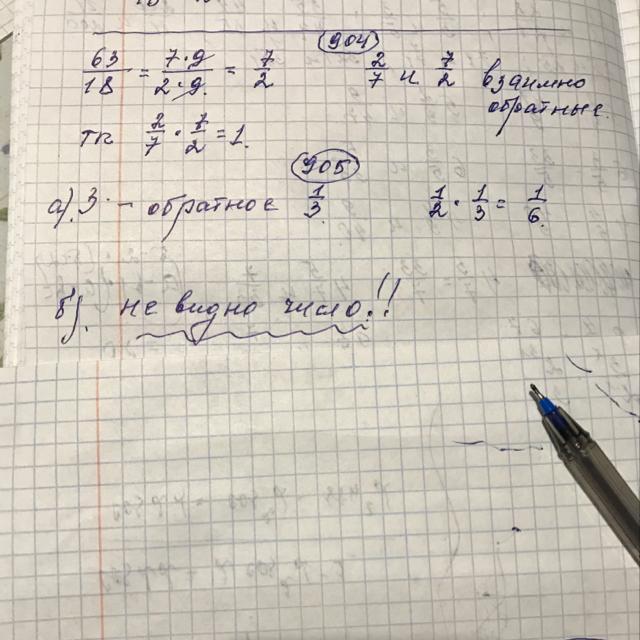 904
63/18 = 7·9/2·9 = 7/2 2/7 и 7/2 взаимно
обратные.
тк 2/7 · 7/2 = 1.
905
а). 3 – обратное 1/3 1/2 · 1/3 = 1/6.
б). не видно число.!!